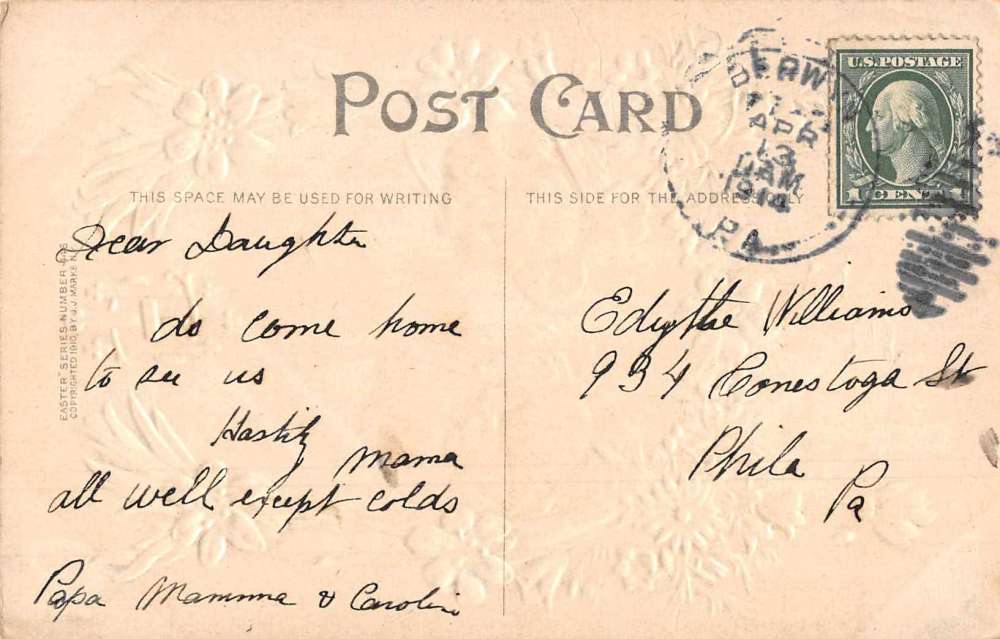 POST CARD
THIS SPACE MAY BE USED FOR WRITING
THIS SIDE FOR THE ADDRESS ONLY
U.S. POSTAGE
1 CENT 1
BERWYN
APR
13
AM
PA
EASTER SERIES NUMBER
COPYRIGHTED 1910, BY J.J. MARKS N.Y.
Dear Daughter
do come home
to see us
Hastily
Mama
all well exept colds
Papa Mamma & Caroline
Edythe Williams
934 Conestoga St
Phila
Pa